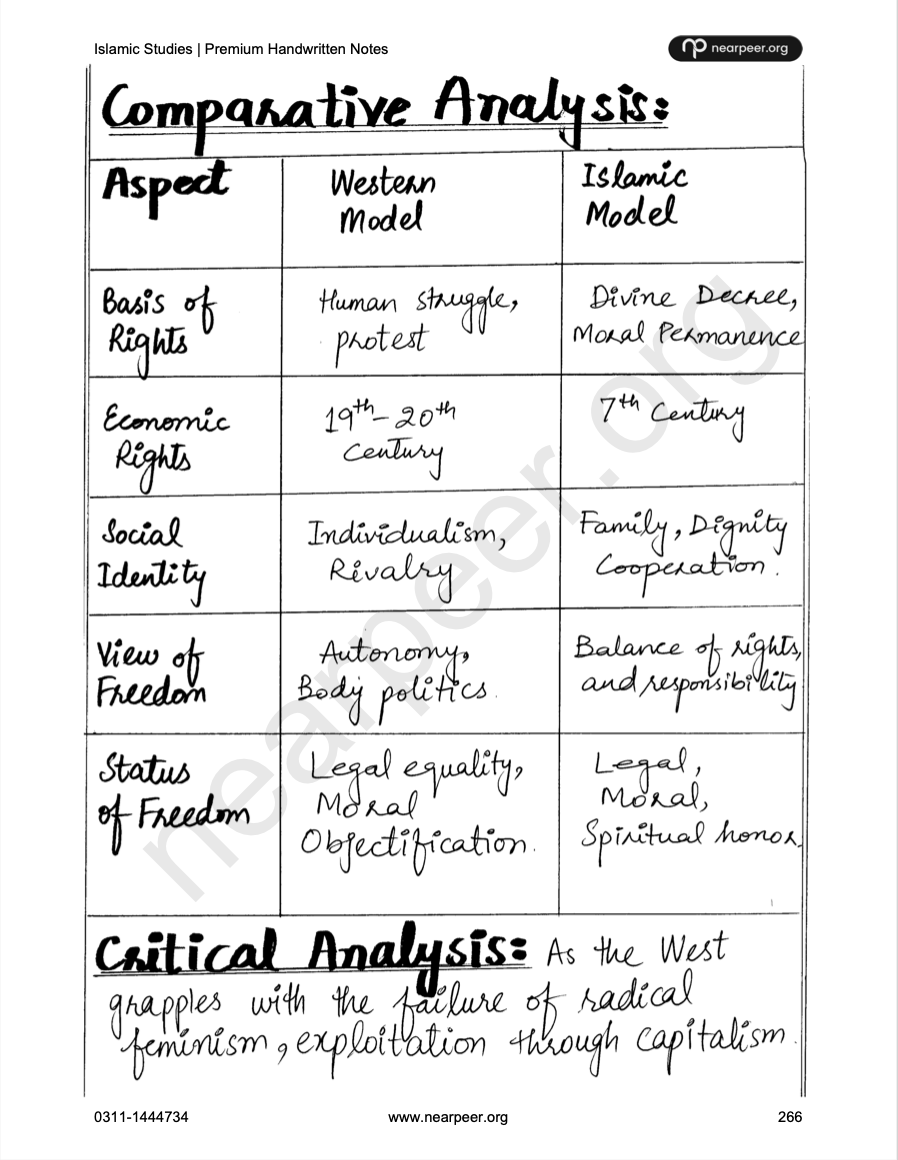 Islamic Studies | Premium Handwritten Notes
nearpeer.org
Comparative Analysis:
Aspect
Western
Model
Islamic
Model
Basis of
Rights
Human struggle,
protest
Divine Decree,
Moral Permanence
Economic
Rights
19th - 20th
Century
7th Century
Social
Identity
Individualism,
Rivalry
Family, Dignity
Cooperation.
View of
Freedom
Autonomy,
Body politics.
Balance of rights,
and responsibility
Status
of Freedom
Legal equality,
Moral
Objectification.
Legal,
Moral,
Spiritual honor.
Critical Analysis: As the West
grapples with the failure of radical
feminism, exploitation through capitalism.
nearpeer.org
0311-1444734
www.nearpeer.org
266